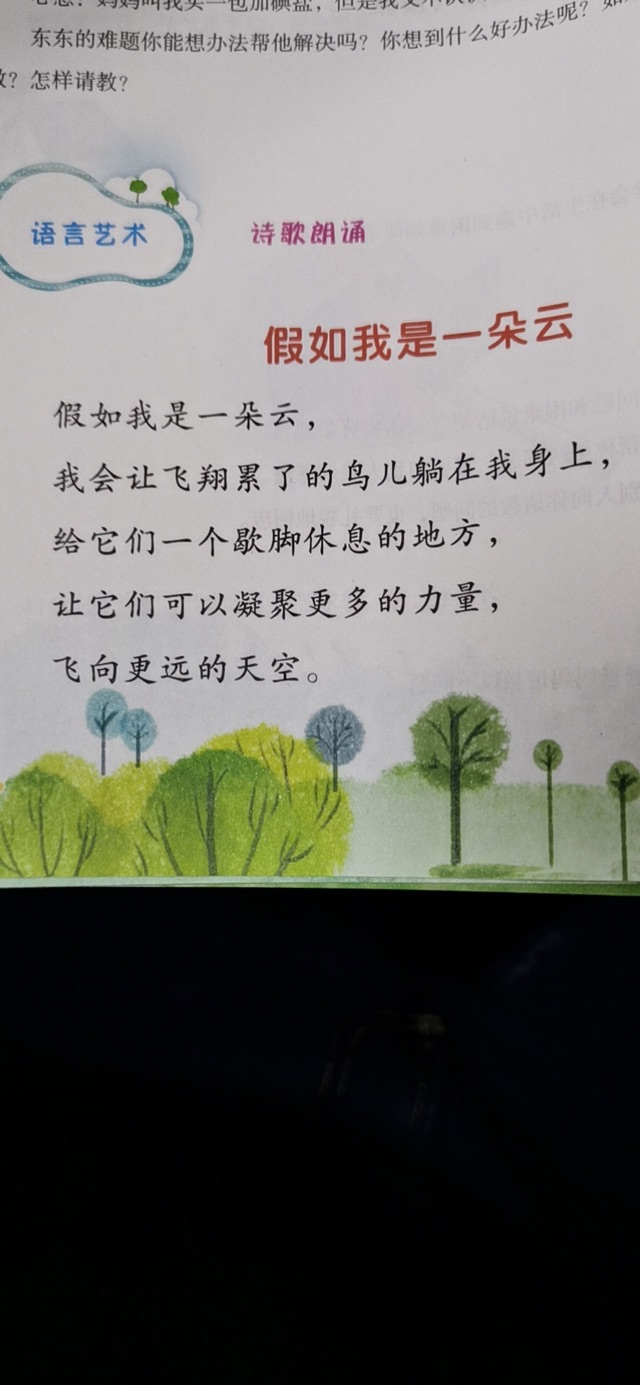 妈妈叫我买一包加碘盐，但是我又不认
东东的难题你能想办法帮他解决吗？你想到什么好办法呢？如
教？怎样请教？
语言艺术
诗歌朗诵
假如我是一朵云
假如我是一朵云，
我会让飞翔累了的鸟儿躺在我身上，
给它们一个歇脚休息的地方，
让它们可以凝聚更多的力量，
飞向更远的天空。